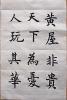 黄屋非貴
天下為憂
人玩其華